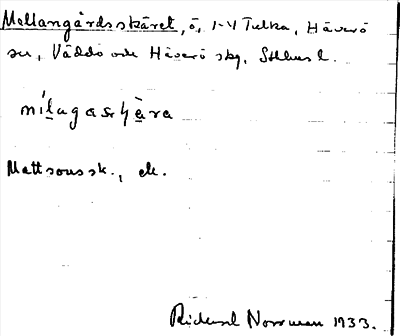 Mellangårdsskäret, ö, 1-4 Tulka, Häverö
sn, Väddö och Häverö skg, Sthlms l.
Mattsons sk., ek.
Rickard Norrman 1933.